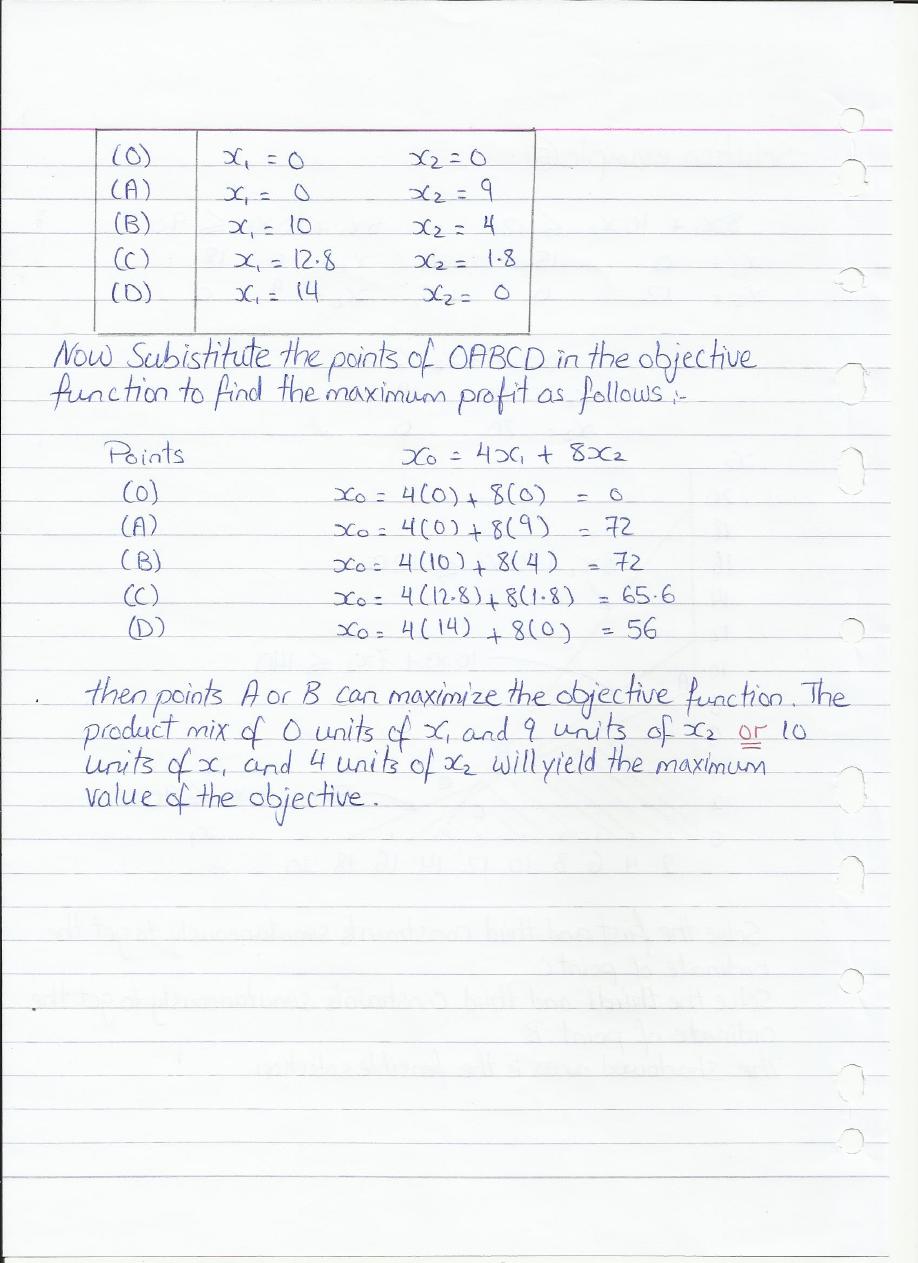 (O) x₁ = 0 x₂ = 0
(A) x₁ = 0 x₂ = 9
(B) x₁ = 10 x₂ = 4
(C) x₁ = 12.8 x₂ = 1.8
(D) x₁ = 14 x₂ = 0
Now Subistitute the points of OABCD in the objective
function to find the maximum profit as follows :-
Points x₀ = 4x₁ + 8x₂
(O) x₀ = 4(0) + 8(0) = 0
(A) x₀ = 4(0) + 8(9) = 72
(B) x₀ = 4(10) + 8(4) = 72
(C) x₀ = 4(12.8) + 8(1.8) = 65.6
(D) x₀ = 4(14) + 8(0) = 56
then points A or B can maximize the objective function. The
product mix of 0 units of x₁ and 9 units of x₂ or 10
units of x₁ and 4 units of x₂ will yield the maximum
value of the objective.